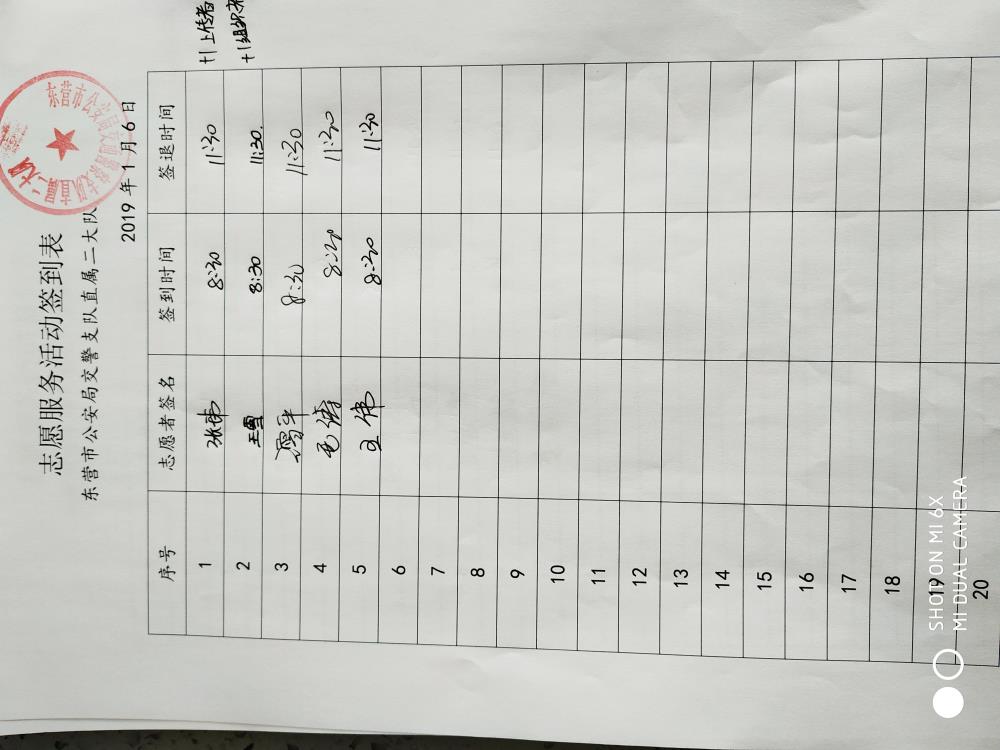 志愿服务活动签到表
东营市公安局交警支队直属二大队
2019 年 1 月 6 日
序号 志愿者签名 签到时间 签退时间
1 张伟 8:30 11:30 +1 上传者
2 王雪 8:30 11:30. +1 组织者
3 冯平 8:30 11:30
4 8:20 11:30
5 王伟 8:20 11:30
6
7
8
9
10
11
12
13
14
15
16
17
18
19
20
SHOT ON MI 6X
MI DUAL CAMERA